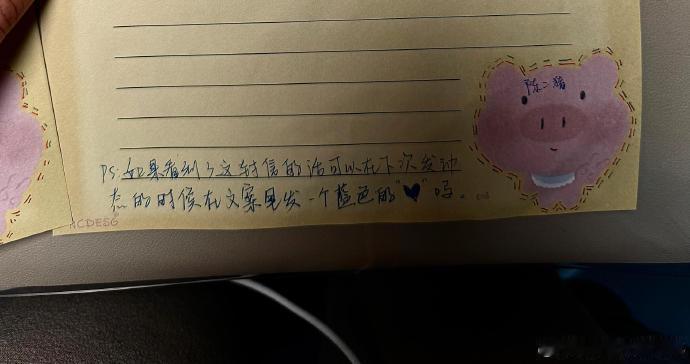 陈二猪
PS:如果看到了这封信的话可以在下次发动
态的时候在文案尾发一个蓝色的"♥"吗。end
NCDESG